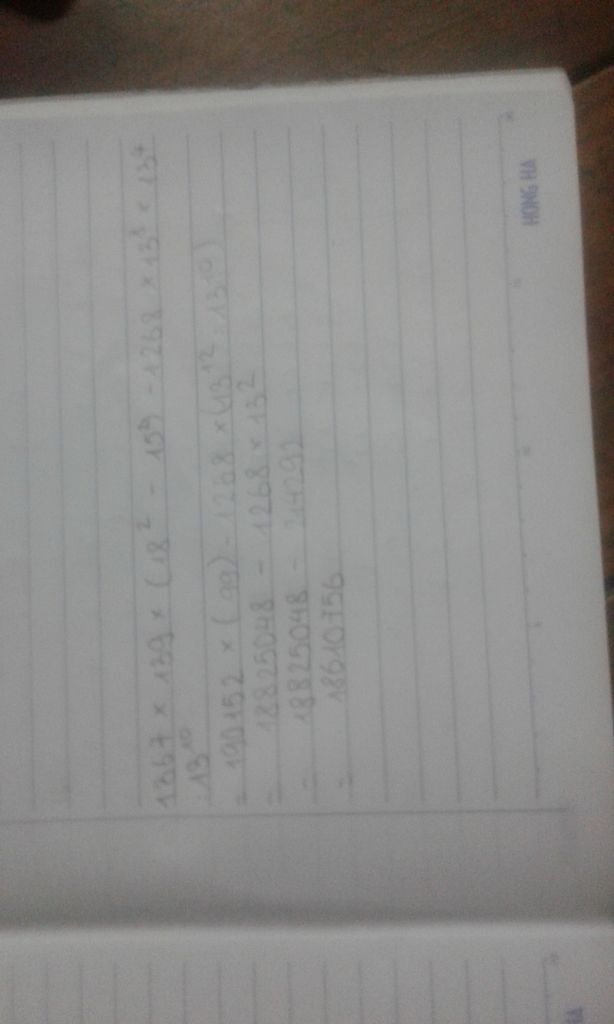 1367 × 139 × (18² - 15²) - 1268 × 13⁸ × 13⁴
: 13¹⁰
= 190152 × (99) - 1268 × (13¹² : 13¹⁰)
= 18825048 - 1268 × 13²
= 18825048 - 214292
= 18610756
HONG HA
HA